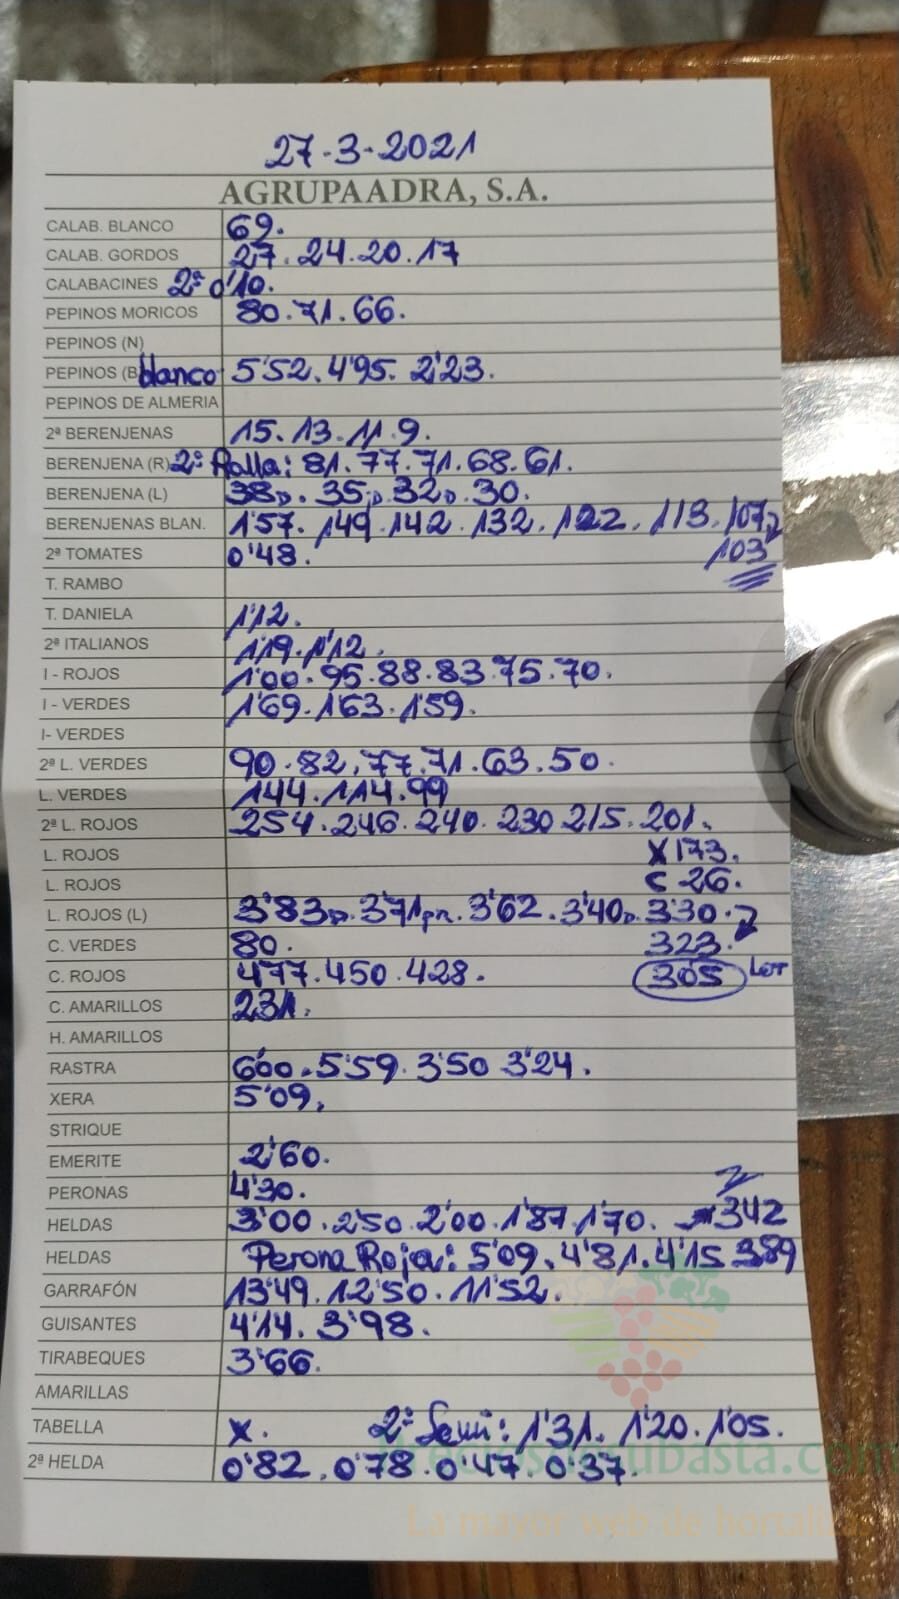 27-3-2021
AGRUPAADRA, S.A.
CALAB. BLANCO 69.
CALAB. GORDOS 27. 24. 20. 17
CALABACINES 2ª 0'10.
PEPINOS MORICOS 80. 71. 66.
PEPINOS (N)
PEPINOS (B blanco 5'52. 4'95. 2'23.
PEPINOS DE ALMERIA
2ª BERENJENAS 15. 13. 11. 9.
BERENJENA (R) 2ª Ralla: 81. 77. 71. 68. 61.
BERENJENA (L) 38p. 35p. 32p. 30.
BERENJENAS BLAN. 1'57. 149. 142. 132. 122. 113. 107
2ª TOMATES 0'48. 103
T. RAMBO
T. DANIELA 1'12.
2ª ITALIANOS 1'19. 1'12.
I - ROJOS 1'00. 95. 88. 83. 75. 70.
I - VERDES 1'69. 1'63. 1'59.
I- VERDES
2ª L. VERDES 90. 82. 77. 71. 63. 50.
L. VERDES 144. 114. 99
2ª L. ROJOS 254. 246. 240. 230 215. 201.
L. ROJOS X 173.
L. ROJOS C 26.
L. ROJOS (L) 3'83p. 3'71pn. 3'62. 3'40p. 330.
C. VERDES 80. 323.
C. ROJOS 477. 450. 428. 305 LOT
C. AMARILLOS 231.
H. AMARILLOS
RASTRA 6'00. 5'59. 3'50 3'24.
XERA 5'09.
STRIQUE
EMERITE 2'60.
PERONAS 4'30.
HELDAS 3'00. 2'50. 2'00. 1'87. 1'70. 342
HELDAS Perona Roja: 5'09. 4'81. 4'15. 389
GARRAFÓN 13'49. 12'50. 11'52.
GUISANTES 4'14. 3'98.
TIRABEQUES 3'66.
AMARILLAS
TABELLA X. 2ª Semi: 1'31. 1'20. 1'05.
2ª HELDA 0'82. 0'78. 0'47. 0'37.
Preciosdesubasta.com
La mayor web de hortalizas